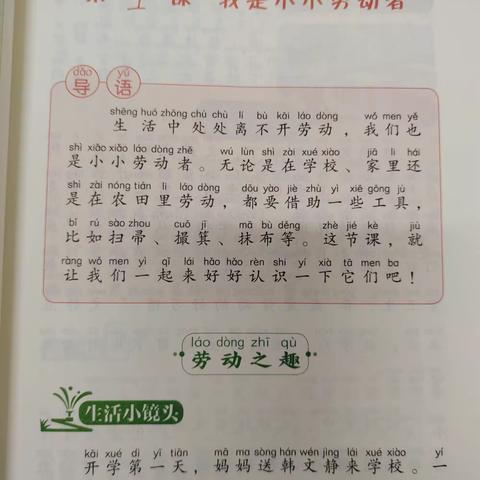 第1课 我是小小劳动者
dǎo yǔ
导语
shēng huó zhōng chù chù lí bù kāi láo dòng wǒ men yě
生活中处处离不开劳动，我们也
shì xiǎo xiǎo láo dòng zhě wú lùn shì zài xué xiào jiā lǐ hái
是小小劳动者。无论是在学校、家里还
shì zài nóng tián lǐ láo dòng dōu yào jiè zhù yì xiē gōng jù
是在农田里劳动，都要借助一些工具，
bǐ rú sào zhou cuō jī mā bù děng zhè jié kè jiù
比如扫帚、撮箕、抹布等。这节课，就
ràng wǒ men yì qǐ lái hǎo hǎo rèn shi yí xià tā men ba
让我们一起来好好认识一下它们吧！
láo dòng zhī qù
劳动之趣
生活小镜头
kāi xué dì yī tiān mā ma sòng hán wén jìng lái xué xiào yí
开学第一天，妈妈送韩文静来学校。一